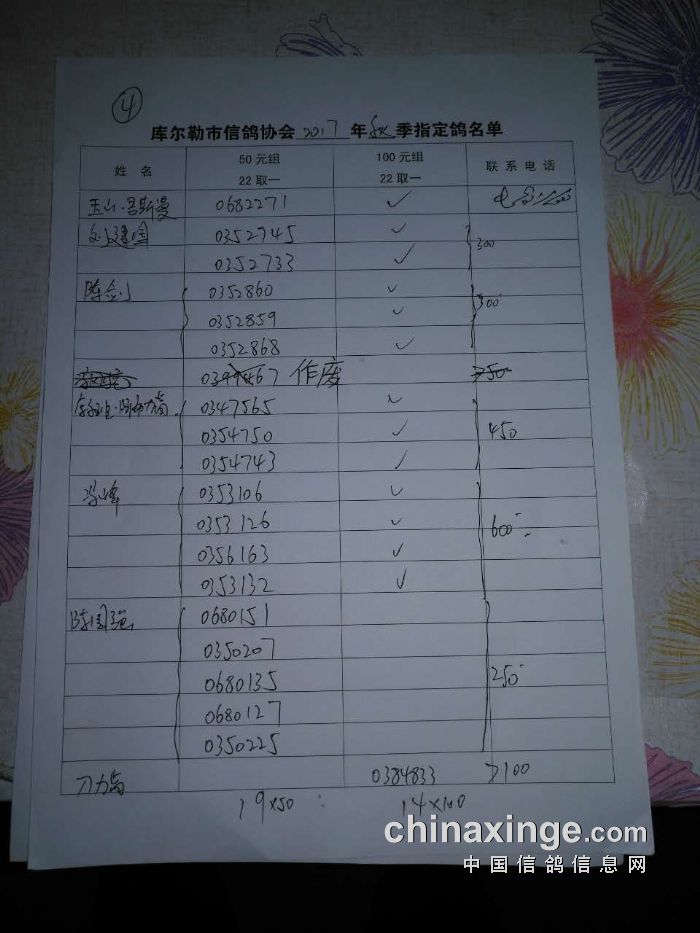 ④
库尔勒市信鸽协会 2017 年秋季指定鸽名单
姓 名 50元组 22取一 100元组 22取一 联系电话
玉山·吾斯曼 0682271 ✓
刘建国 0352745 ✓
0352733 ✓ 300
陈剑 0352860 ✓
0352859 ✓ 300
0352868 ✓
作废
0347565 ✓
0354750 ✓ 450
0354743 ✓
0353106 ✓
0353126 ✓ 600
0356163 ✓
0353132 ✓
0680151
0350207
0680135 250
0680127
0350225
刀力高 0384833 100
19×50 14×100
chinaxinge.com
中国信鸽信息网